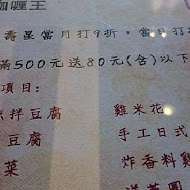 咖哩王
壽星當月打9折，當月
滿500元送80元(含)以下
項目：
涼拌豆腐 雞米花
豆腐 手工日式
菜 炸香料雞